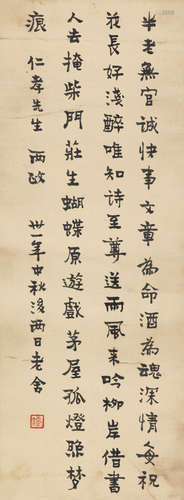 半老無官誠快事文章為命酒為魂深情每祝
花長好淺醉唯知诗至尊送雨風来吟柳岸借書
人去掩柴門莊生蝴蝶原遊戲茅屋孤燈照梦
痕　仁孝先生　两政　卅一年中秋後两日老舍